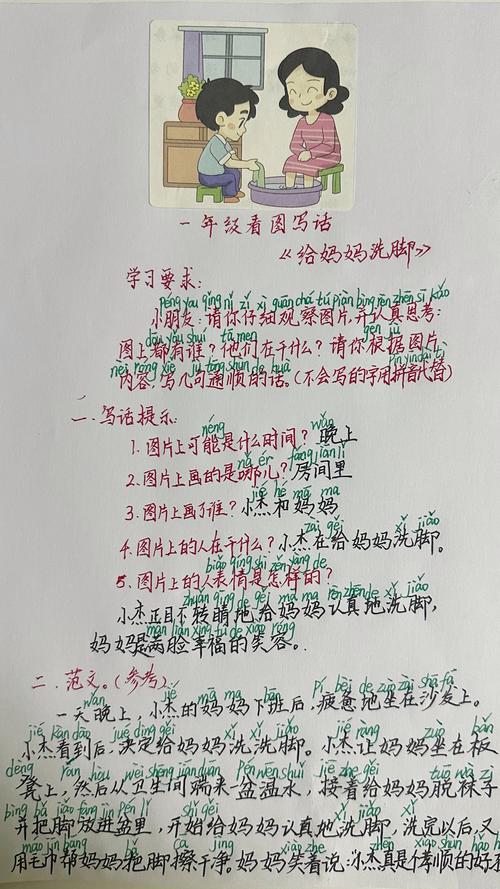 一年级看图写话
《给妈妈洗脚》
学习要求:
péng yǒu qǐng nǐ zǐ xì guān chá tú piàn bìng rèn zhēn sī kǎo
小朋友:请你仔细观察图片,并认真思考:
dōu yǒu shuí tā men gēn jù
图上都有谁?他们在干什么?请你根据图片
nèi róng xiě jù tōng shùn de huà pīn yīn dài tì
内容,写几句通顺的话。(不会写的字用拼音代替)
一.写话提示:
néng wǎn
1.图片上可能是什么时间?晚上
nǎ ér fáng jiān lǐ
2.图片上画的是哪儿?房间里
jié hé mā ma
3.图片上画了谁?小杰和妈妈
zài gěi xǐ jiǎo
4.图片上的人在干什么?小杰在给妈妈洗脚。
biǎo qíng shì zěn yàng de
5.图片上的人表情是怎样的?
zhuǎn jīng de gěi mā ma rèn zhēn de xǐ jiǎo
小杰正目不转睛地给妈妈认真地洗脚,
mǎn liǎn xìng fú de xiào róng
妈妈是满脸幸福的笑容。
二.范文。(参考)
wǎn jié mā ma bān pí bèi de zuò zài shā fā
一天晚上,小杰的妈妈下班后,疲惫地坐在沙发上。
jié kàn dào jué dìng gěi xǐ xǐ jiǎo jié ràng zuò zài bǎn
小杰看到后,决定给妈妈洗洗脚。小杰让妈妈坐在板
dèng rán hòu wèi shēng jiān duān pén wēn shuǐ jiē zhe gěi tuō wà zi
凳上,然后从卫生间端来一盆温水,接着给妈妈脱袜子
bìng bǎ jiǎo fàng jìn pén lǐ shǐ gěi xǐ jiǎo
并把脚放进盆里,开始给妈妈认真地洗脚,洗完以后,又
máo jīn bāng bǎ jiǎo cā jìng xiào zhe
用毛巾帮妈妈把脚擦干净。妈妈笑着说:小杰真是个孝顺的好